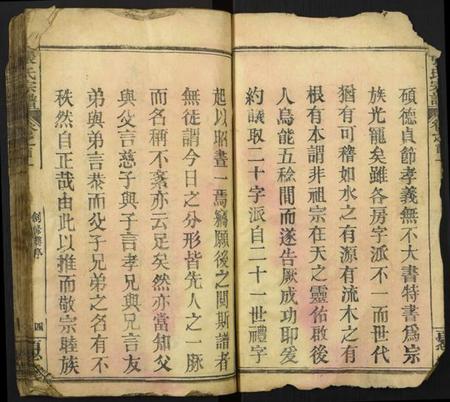 碩德貞節孝義無不大書特書為宗
族光寵矣雖各房字派不一而世代
猶有可稽如水之有源有流木之有
根有本謂非祖宗在天之靈佑啟後
人烏能五稔間而遂告厥成功耶爰
約議取二十字派自二十一世禮字
起以昭畫一焉竊願後之閱斯譜者
無徒謂今日之分形皆先人之一脈
而名稱不紊亦云足矣然亦當知父
與父言慈子與子言孝兄與兄言友
弟與弟言恭而父子兄弟之名有不
秩然自正哉由此以推而敬宗睦族
氏宗譜
四